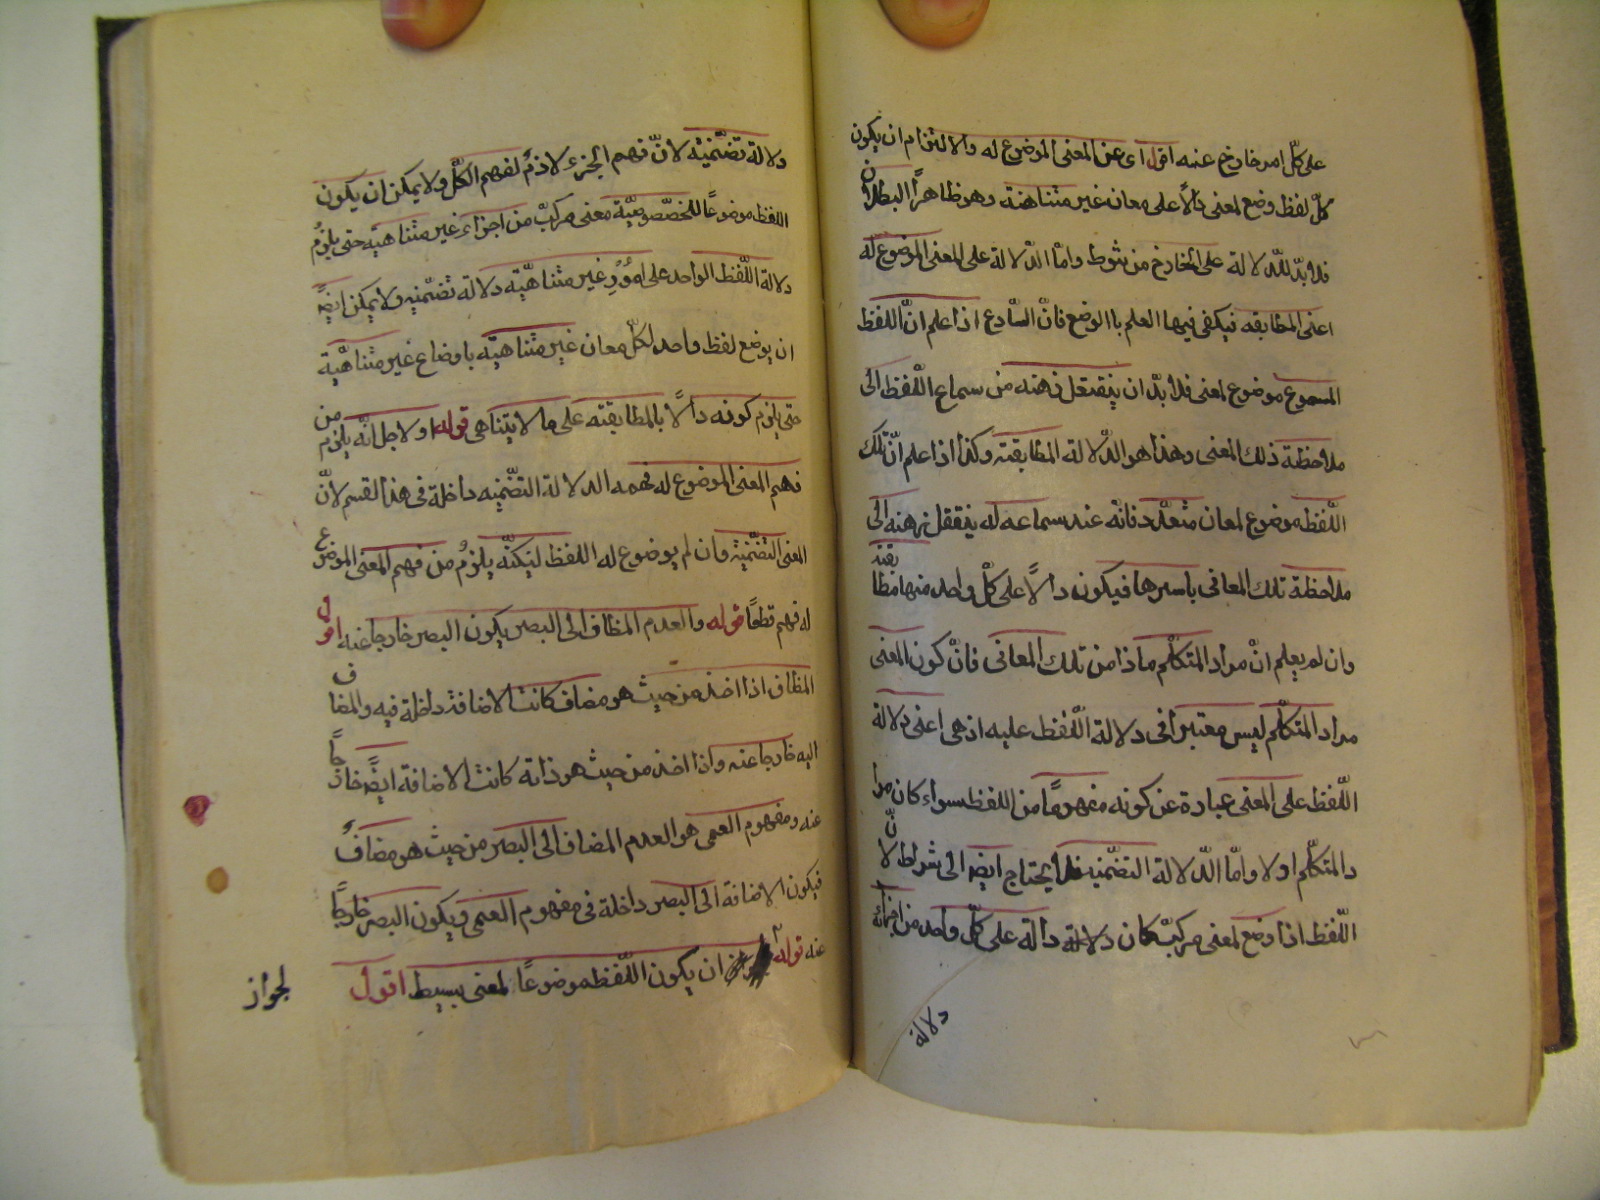 على كل امر خارج عنه اقول اى عن المعنى الموضوع له والا لتزام ان يكون
كل لفظ وضع لمعنى دالًا على معان غير متناهية وهو ظاهرًا البطلان
فلا بدّ للدّلالة على الخارج من شوط وامّا الدّلالة على المعنى الموضوع له
اعنى المطابقه فيكفى فيها العلم باالوضع فانّ السّادع اذا علم انّ اللفظ
المسموع موضوع لمعنى فلا بدّ ان ينتقل ذهنه من سماع اللّفظ الى
ملاحظة ذلك المعنى وهذا هو الدّلالة المطابقته وكذا اذا علم انّ تلك
اللّفظ موضوع لمعان متعدّد فانّه عند سماعه له ينتقل ذهنه الى
ملاحظة تلك المعانى باسرها فيكون دالًا على كلّ واحد منها مطابقته
وان لم يعلم انّ مراد المتكلّم ماذا من تلك المعانى فانّ كون المعنى
مراد المتكلّم ليس معتبرا فى دلالة اللّفظ عليه اذ هى اعنى دلالة
اللّفظ على المعنى عبارة عن كونه مفهومًا من اللفظ سواء كان مرا
د المتكلّم اولا وامّا الدّلالة التضمّنيه فلا يحتاج ايضا الى شرط لانّ
اللّفظ اذا وضع لمعنى مركبّ كان دلالة دالة على كلّ واحد من اجزائه
دلالة
دلالة تضمّنيّه لانّ فهم الجزء لازمٌ لفهم الكلّ ولا يمكن ان يكون
اللفظ موضوعًا للخصّصوصيّة معنى مركبّ من اجزاء غير متناهيّه حتى يلزمُ
دلالة اللّفظ الواحد على امورٍ غير متناهيّة دلالة تضمّنيه ولا يمكن ايضًا
ان يوضع لفظ واحد لكلّ معان غير متناهيّه باوضاع غير متناهيّة
حتى يلزم كونه دالًا بالمطابقته على ما لا يتناهى قوله اولاجل انّه يلزم من
فهم المعنى الموضوع له فهمه الدلالة التضّمنيه داخلة فى هذا القسم لانّ
المعنى التضّمنيّة وان لم يوضوع له اللفظ ليكنّه يلزمُ من فهم المعنى الموضوع
له فهم قطعًا قوله والعدم المظاف الى البصر يكون البصر خارجا عنه اقول
المظاف اذا اخذ من حيث هو مضاف كانت الاضافة داخلة فيه والمضاف
اليه خارجا عنه واذا اخذ من حيث هو ذاته كانت الاضافة ايضًا خارجًا
عنه ومفهوم العمى هو العدم المضاف الى البصر من حيث هو مضافٌ
فيكون الاضافة الى البصر داخلة فى مفهوم العمى ويكون البصر خارجًا
عنه قوله ان يكون اللّفظ موضوعًا لمعنى بسيط اقول
لجواز